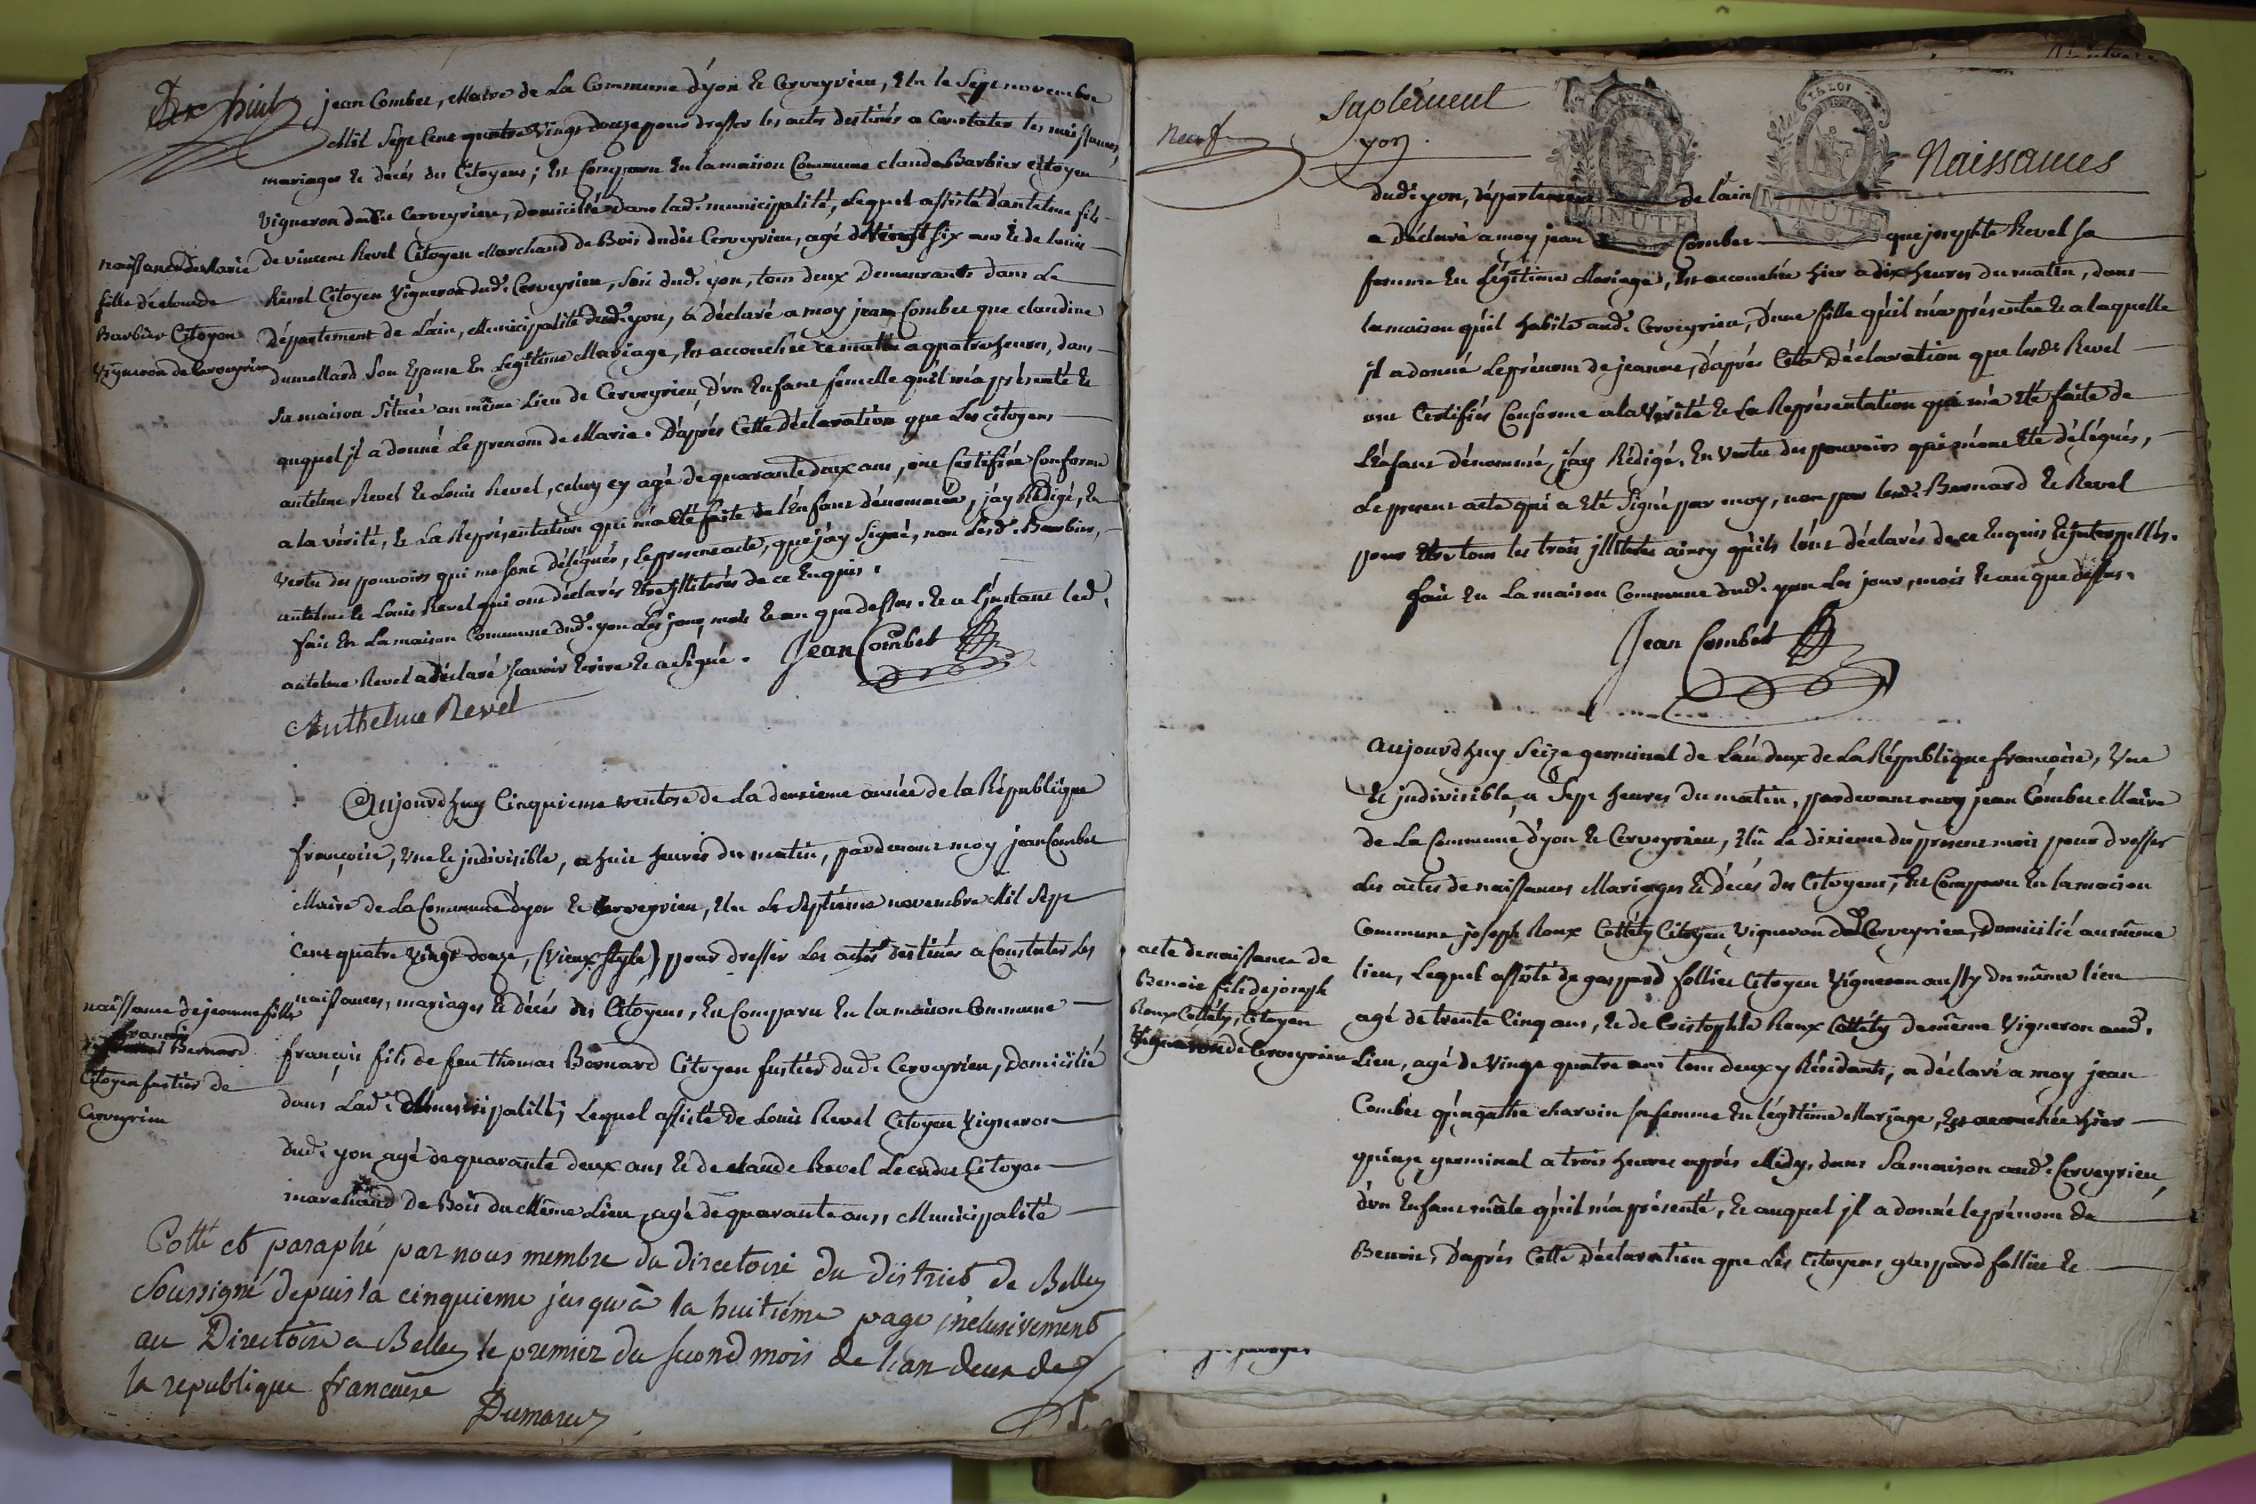 huit
jean Combet, Maire de La Commune d'yon et Cerveyrieu, Elu le Sept novembre
Mil Sept Cent quatre Vingt douze pour dresser les actes destinés a Constater les naissances,
mariages et décés des Citoyens; Est Comparu En la maison Commune claude Barbier Citoyen
Vigneron dudit Cerveyrieu, Domicilié dans lad.e municipalité, Lequel assisté d'antelme fils
de vincent Revel Citoyen Marchand de Bois dudit Cerveyrieu, agé de Vingt six ans et de louis
Revel Citoyen Vigneron dud.t Cerveyrieu, soit dud.t yon, tous deux Demeurants dans Le
Département de L'ain, Municipalité dud.t yon, a déclaré a moy jean Combet que claudine
dumollard Son Epouse En Legitime Mariage, Est accouchée ce matin a quatre heures, dans
Sa maison Située au même Lieu de Cerveyrieu d'un Enfant femelle qu'il m'a présenté et
auquel jl a donné Le prenom de Marie. D'aprés Cette déclaration que Les citoyens
antelme Revel et Louis Revel, celuy cy agé de quarante deux ans, ont Certifiée Conforme
a la vérité, et La Représentation qui m'a été faite de l'Enfant dénommée, j'ay Rédigé, En
Vertu des pouvoirs qui me sont délégués, Le present acte, que j'ay Signé, non Lesd. Barbier,
antelme et Louis Revel qui ont déclarés Etre jllitérés de ce Enquis.
fait En La maison Commune dud.t yon Les jour, mois et an que dessus. et a L'instant led.
antelme Revel a déclaré Scavoir Ecrire et a Signé. Jean Combet
Anthelme Revel
naissance de Marie
fille de claude
Barbier Citoyen
Vigneron de Cerveyrieu
Aujourd'huy Cinquieme ventose de La deuxieme année de la République
françoise, Une et jndivisible, a huit heures du matin, pardevant moy jean Combet
Maire de La Commune d'yon et Cerveyrieu, Elu Le Septiéme novembre Mil Sept
Cent quatre Vingt douze, (vieux Style) pour dresser Les actes destinés a Constater Les
naissances, mariages et décés des Citoyens, Est Comparu En la maison Commune
françois fils de feu thomas Bernard Citoyen fustier dud.t Cerveyrieu, Domicilié
dans Lad.e Municipalité; Lequel assisté de Louis Revel Citoyen Vigneron
dud.t yon agé de quarante deux ans et de claude Revel Citoyen
marchand de Bois du Même Lieu, agé de quarante ans, Municipalité
naissance de jeanne fille
francois
Bernard
Citoyen fustier de
Cerveyrieu
Cotté et paraphé par nous membre du directoire du district de Belley
Soussigné depuis la cinquieme jusqu'à la huitiéme page inclusivement
au Directoire a Belley le premier du second mois de l'an deux de
la republique francaise
neuf
Suplément
yon.
LA LOI
MINUTE
MINUTE
Naissances
dud.t yon, département de l'ain
a déclaré a moy jean Combet que josephte Revel sa
femme En Légitime Mariage, Est accouchée hier a dix heures du matin, dans
la maison qu'il habite aud.t Cerveyrieu, d'une fille qu'il m'a présentée et a laquelle
jl a donné Le prénom de jeanne, d'aprés Cette Déclaration que lesd.ts Revel
ont Certifiés Conforme a la Vérité et La Représentation qui m'a été faite de
L'Enfant dénommé, j'ay Rédigé, En Vertu des pouvoirs qui m'ont été délégués,
Le present acte qui a été Signé par moy, non par lesd.ts Bernard et Revel
pour Etre tous les trois jllitérés ainsy qu'ils l'ont déclarés de ce Enquis et jnterpellés.
fait En La maison Commune dud.t yon Les jour, mois et an que dessus.
Jean Combet
Aujourd'huy Seize germinal de L'an deux de La République françoise, Une
et jndivisible, a Sept heures du matin, pardevant moy jean Combet Maire
de La Commune d'yon et Cerveyrieu, Elû Le dixieme du présent mois pour dresser
Les actes de naissances Mariages et décés des Citoyens; Est Comparu En la maison
Commune joseph Roux Cottéty Citoyen Vigneron dud.t Cerveyrieu, Domicilié au même
lieu, Lequel assisté de gaspard follier Citoyen Vigneron aussy du même lieu
agé de trente Cinq ans, et de Cristophle Roux Cottéty de même Vigneron aud.t
Lieu, agé de Vingt quatre ans tous deux y Résidants, a déclaré a moy jean
Combet qu'agathe charvin sa femme En légitime Mariage, Est accouchée hier
quinze germinal a trois heures aprés Midy, dans Sa maison aud.t Cerveyrieu,
d'un Enfant mâle qu'il m'a présenté, et auquel jl a donné le prénom de
Benoit, d'aprés Cette Déclaration que Les Citoyens gaspard follier et
acte de naissance de
Benoit fils de joseph
Roux Cottéty, Citoyen
Vigneron de Cerveyrieu